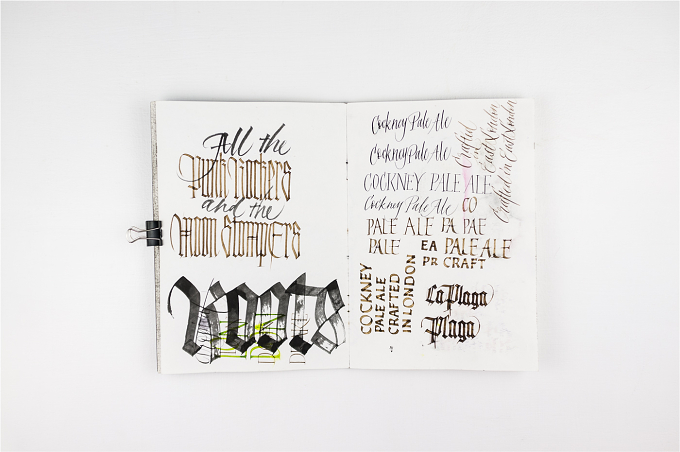 All the
Punk Rockers
and the
Moon Stompers
ROOTS
Cockney Pale Ale
Cockney Pale Ale
COCKNEY PALE ALE
Cockney Pale Ale CO
PALE ALE PA PAE
PALE EA PALE ALE
PR CRAFT
Crafted
East London
Crafted in East London
COCKNEY
PALE ALE
CRAFTED
IN LONDON
La Plaga
Plaga